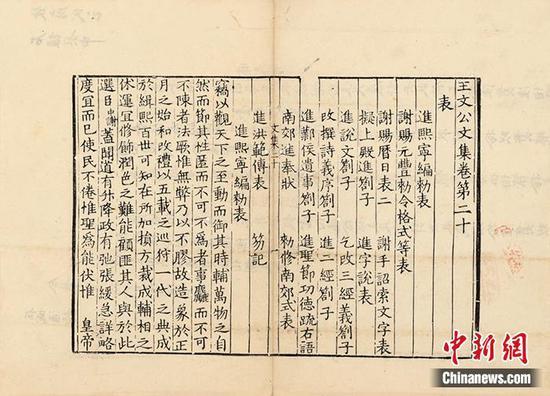 王文公文集卷第二十
表
進熙寧編勑表
謝賜元豐勑令格式等表
謝賜曆日表二 謝手詔索文字表
擬上殿進劄子 進字說表
進說文劄子 乞改三經義劄子
改撰詩義序劄子 進二經劄子
進鄴侯遺事劄子 進聖節功德疏右語
南郊進奉狀 勑修南郊式表
文集二十 一
進洪範傳表 笏記
進熙寧編勑表
竊以觀天下之至動而御其時輔萬物之自
然而節其性匿而不可不為者事麤而不可
不陳者法歌惟無弊乃以不膠故造象於正
月之始和改禮以五載之巡狩一代之典成
於緝熙百世可知在所加損方裁成輔相之
休運宜修飾潤色之難能顧匪其人與於此
選臣中謝蓋聞道有升降政有弛張緩急詳略
度宜而已使民不倦惟聖為能伏惟 皇帝
中新網
Chinanews.com